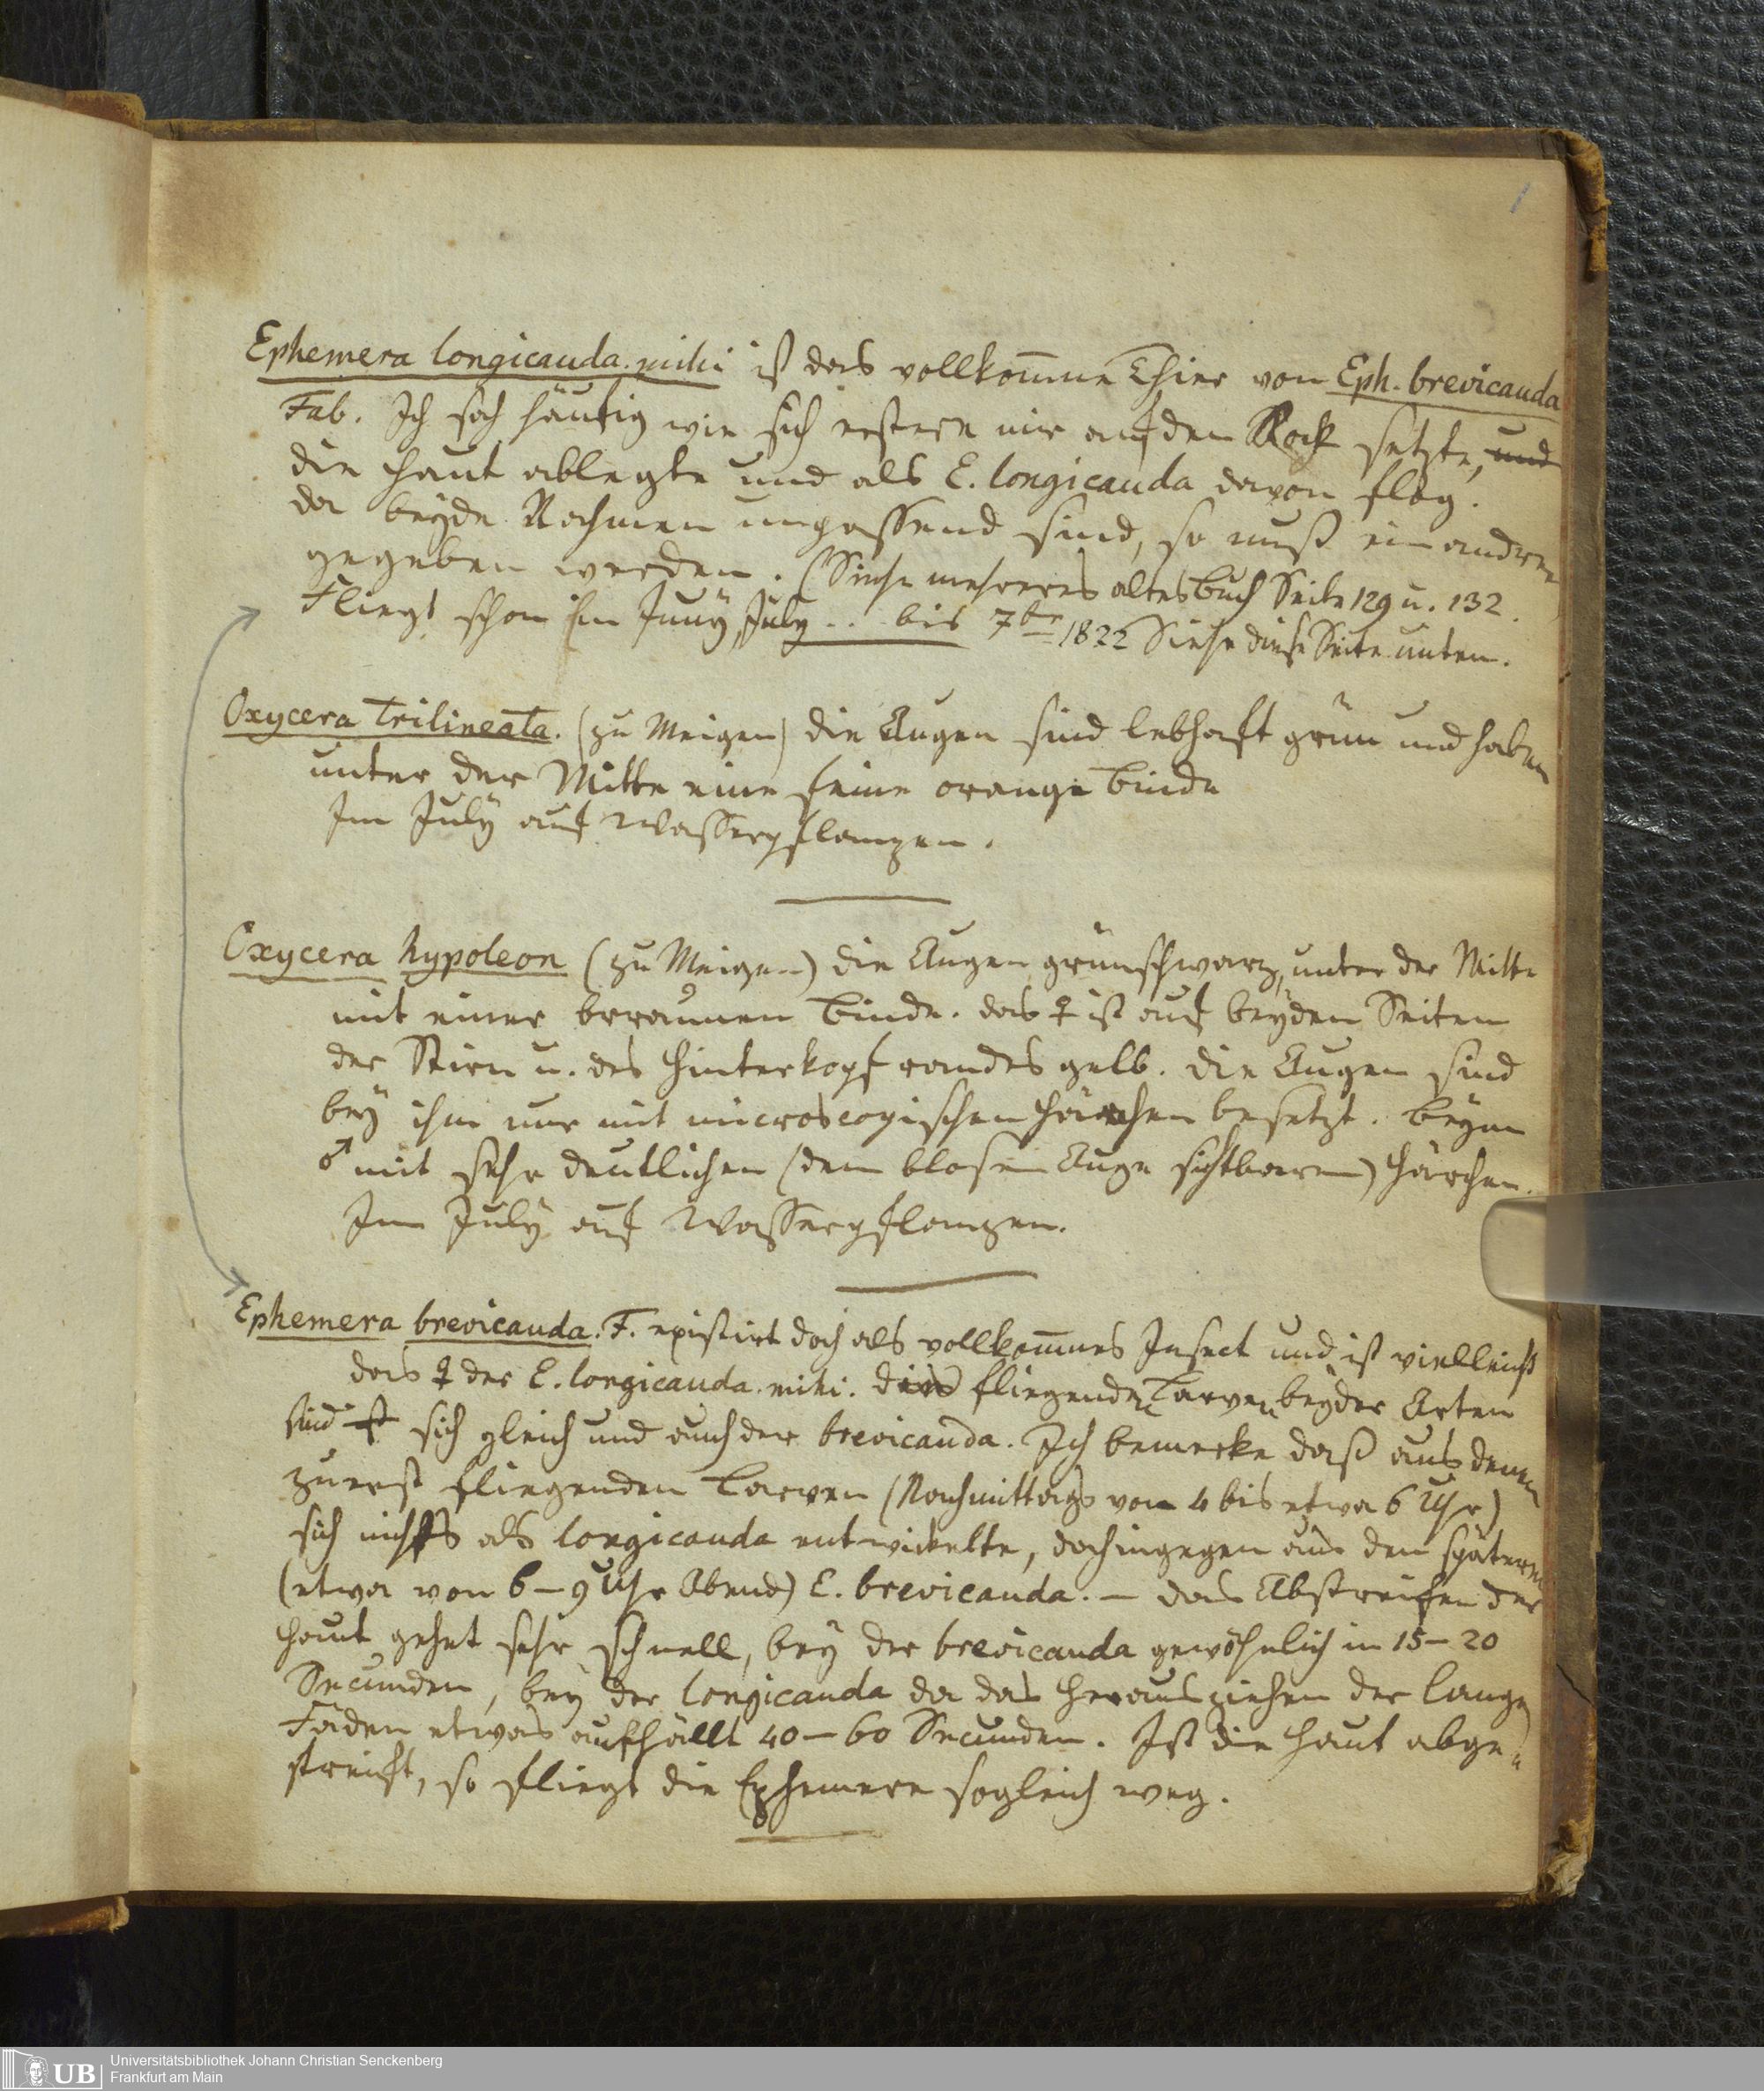 1
Ephemera longicauda. mihi ist das vollkom̅ne Thier von Eph. brevicauda
Fab. Ich sah häufig wie sich erstere mir auf den Rock setzte, und
die Haut ablegte und als E. longicauda davon flog.
da beyde Nahmen unpassend sind, so muß ein andrer
gegeben werden. (Siehe mehreres altes Buch Seite 129 u. 132.
Fliegt schon im Juny, July .. bis 7br 1822 Siehe diese Seite unten.
Oxycera trilineata. (zu Meigen) die Augen sind lebhaft grün und haben
unter der Mitte eine feine orange Binde
Im July auf Wasserpflanzen.
Oxycera hypoleon (zu Meigen) die Augen grünschwarz, unter der Mitte
mit einer braunen Binde. das ♀ ist auf beyden Seiten
der Stirn u. des Hinterkopfrandes gelb. die Augen sind
bey ihm nur mit microscopischen Härchen besetzt. Beym
♂ mit sehr deutlichen (dem blosen Auge sichtbaren) Härchen.
Im July auf Wasserpflanzen.
Ephemera brevicauda. F. existirt doch als vollkom̅nes Insect und ist vielleicht
das ♀ der E. longicauda. mihi. die fliegenden Larven beyder Arten
sind ist sich gleich und auch der brevicauda. Ich bemerke daß aus denen
zuerst fliegenden Larven (Nachmittags von 4 bis etwa 6 Uhr)
sich nichts als longicauda entwickelte, dahingegen aus den spätern
(etwa von 6–9 Uhr Abend) E. brevicauda. — das Abstreifen der
Haut gehet sehr schnell, bey der brevicauda gewöhnlich in 15–20
Secunden, bey der longicauda da das Herausziehen der lange
Fäden etwas aufhällt 40–60 Secunden. Ist die Haut abge=
streift, so fliegt die Ephemere sogleich weg.
UB
Universitätsbibliothek Johann Christian Senckenberg
Frankfurt am Main